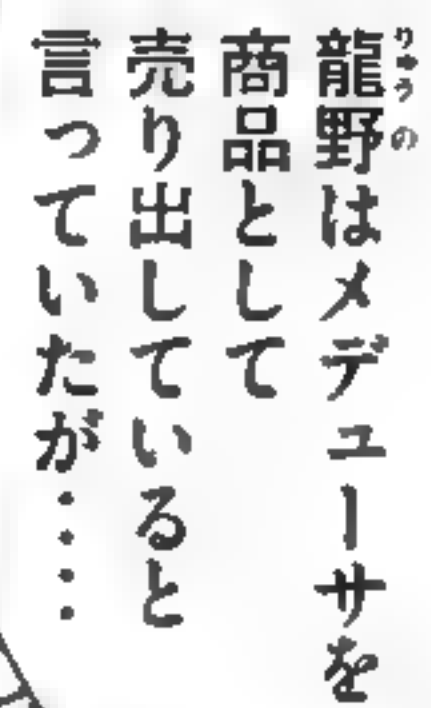 龍野はメデューサを
商品として
売り出していると
言っていたが‥‥